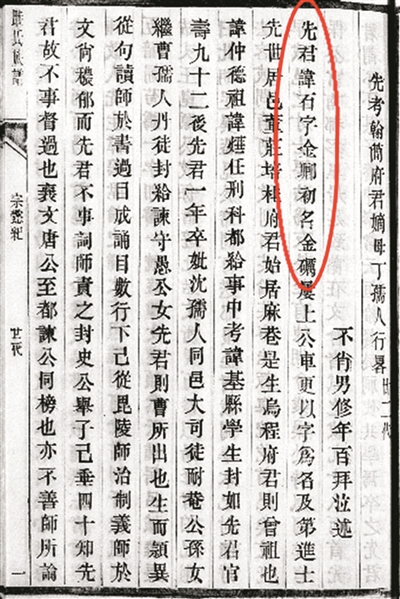 先考翰簡府君嫡母丁孺人行畧
不肖男修年百拜泣述
先君諱石字金卿初名金礪屢上公車更以字為名及第進士
先世居邑董莊培樸府君始居麻巷是生烏程府君則曾祖也
諱仲德祖諱任刑科都給事中考諱基縣學生封如先君官
壽九十二後先君一年卒妣沈孺人同邑大司徒耐菴公孫女
繼曹孺人丹徒封給諫守愚公女先君則曹所出也生而穎異
從句讀師於書過目成誦目數行下已從毘陵師治制義師於
文尚穠郁而先君不事詞師責之封史公舉子已垂四十知先
君故不事督過也襄文唐公至都諫公同榜也亦不善師所論
氏
一